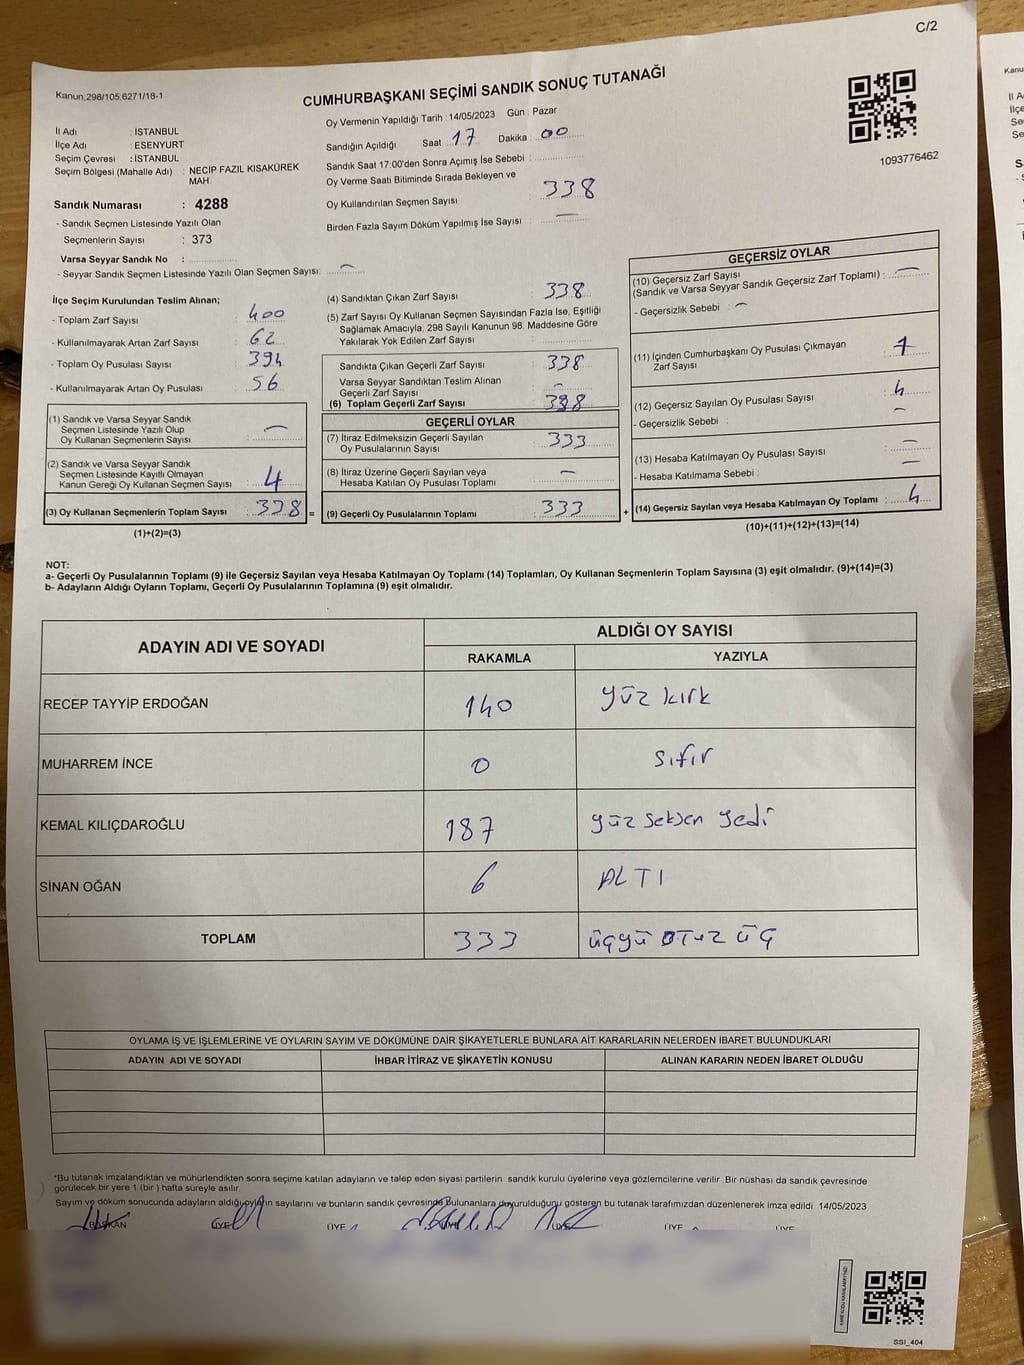 C/2
Kanun;298/105,6271/18-1
CUMHURBAŞKANI SEÇİMİ SANDIK SONUÇ TUTANAĞI
İl Adı : İSTANBUL
İlçe Adı : ESENYURT
Seçim Çevresi : İSTANBUL
Seçim Bölgesi (Mahalle Adı) : NECİP FAZIL KISAKÜREK
MAH.
Sandık Numarası : 4288
- Sandık Seçmen Listesinde Yazılı Olan
Seçmenlerin Sayısı : 373
Varsa Seyyar Sandık No :
- Seyyar Sandık Seçmen Listesinde Yazılı Olan Seçmen Sayısı: —
Oy Vermenin Yapıldığı Tarih : 14/05/2023 Gün : Pazar
Sandığın Açıldığı Saat 17 Dakika : 00
Sandık Saat 17:00'den Sonra Açımış İse Sebebi :
Oy Verme Saati Bitiminde Sırada Bekleyen ve
Oy Kullandırılan Seçmen Sayısı 338
Birden Fazla Sayım Döküm Yapılmış İse Sayısı : —
1093776462
İlçe Seçim Kurulundan Teslim Alınan;
- Toplam Zarf Sayısı : 400
- Kullanılmayarak Artan Zarf Sayısı : 62
- Toplam Oy Pusulası Sayısı : 394
- Kullanılmayarak Artan Oy Pusulası : 56
(1) Sandık ve Varsa Seyyar Sandık
Seçmen Listesinde Yazılı Olup
Oy Kullanan Seçmenlerin Sayısı : —
(2) Sandık ve Varsa Seyyar Sandık
Seçmen Listesinde Kayıtlı Olmayan
Kanun Gereği Oy Kullanan Seçmen Sayısı : 4
(3) Oy Kullanan Seçmenlerin Toplam Sayısı : 338 =
(1)+(2)=(3)
(4) Sandıktan Çıkan Zarf Sayısı 338
(5) Zarf Sayısı Oy Kullanan Seçmen Sayısından Fazla İse, Eşitliği
Sağlamak Amacıyla, 298 Sayılı Kanunun 98. Maddesine Göre
Yakılarak Yok Edilen Zarf Sayısı :
Sandıkta Çıkan Geçerli Zarf Sayısı : 338
Varsa Seyyar Sandıktan Teslim Alınan
Geçerli Zarf Sayısı : —
(6) Toplam Geçerli Zarf Sayısı : 338
GEÇERLİ OYLAR
(7) İtiraz Edilmeksizin Geçerli Sayılan
Oy Pusulalarının Sayısı : 333
(8) İtiraz Üzerine Geçerli Sayılan veya
Hesaba Katılan Oy Pusulası Toplamı : —
(9) Geçerli Oy Pusulalarının Toplamı : 333 +
GEÇERSİZ OYLAR
(10) Geçersiz Zarf Sayısı
(Sandık ve Varsa Seyyar Sandık Geçersiz Zarf Toplamı) : —
- Geçersizlik Sebebi : —
(11) İçinden Cumhurbaşkanı Oy Pusulası Çıkmayan
Zarf Sayısı : 1
(12) Geçersiz Sayılan Oy Pusulası Sayısı : 4
- Geçersizlik Sebebi : —
(13) Hesaba Katılmayan Oy Pusulası Sayısı : —
- Hesaba Katılmama Sebebi : —
(14) Geçersiz Sayılan veya Hesaba Katılmayan Oy Toplamı : 4
(10)+(11)+(12)+(13)=(14)
NOT:
a- Geçerli Oy Pusulalarının Toplamı (9) ile Geçersiz Sayılan veya Hesaba Katılmayan Oy Toplamı (14) Toplamları, Oy Kullanan Seçmenlerin Toplam Sayısına (3) eşit olmalıdır. (9)+(14)=(3)
b- Adayların Aldığı Oyların Toplamı, Geçerli Oy Pusulalarının Toplamına (9) eşit olmalıdır.
ADAYIN ADI VE SOYADI ALDIĞI OY SAYISI
RAKAMLA YAZIYLA
RECEP TAYYİP ERDOĞAN 140 yüz kırk
MUHARREM İNCE 0 sıfır
KEMAL KILIÇDAROĞLU 187 yüz seksen yedi
SİNAN OĞAN 6 ALTI
TOPLAM 333 üçyü otuz üç
OYLAMA İŞ VE İŞLEMLERİNE VE OYLARIN SAYIM VE DÖKÜMÜNE DAİR ŞİKAYETLERLE BUNLARA AİT KARARLARIN NELERDEN İBARET BULUNDUKLARI
ADAYIN ADI VE SOYADI İHBAR İTİRAZ VE ŞİKAYETİN KONUSU ALINAN KARARIN NEDEN İBARET OLDUĞU
*Bu tutanak imzalandıktan ve mühürlendikten sonra seçime katılan adayların ve talep eden siyasi partilerin sandık kurulu üyelerine veya gözlemcilerine verilir. Bir nüshası da sandık çevresinde
görülecek bir yere 1 (bir ) hafta süreyle asılır.
Sayım ve döküm sonucunda adayların aldığı oyların sayılarını ve bunların sandık çevresinde Bulunanlara duyurulduğunu gösteren bu tutanak tarafımızdan düzenlenerek imza edildi. 14/05/2023
BAŞKAN ÜYE ÜYE ÜYE ÜYE ÜYE ÜYE
SSI_404